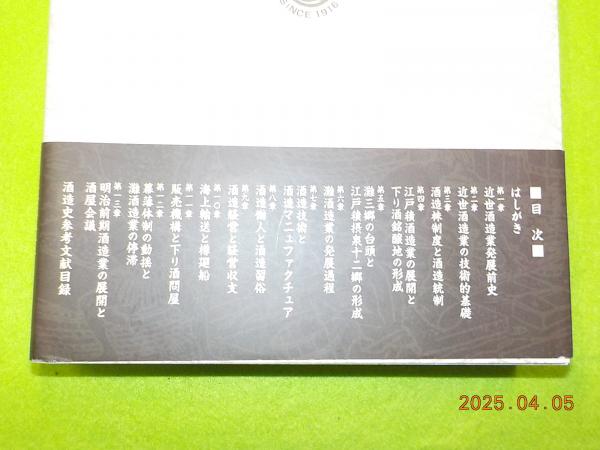 SINCE 1916
■目 次■
はしがき
第一章
近世酒造業発展前史
第二章
近世酒造業の技術的基礎
第三章
酒造株制度と酒造統制
第四章
江戸積酒造業の展開と
下り酒銘醸地の形成
第五章
灘三郷の台頭と
江戸積摂泉十二郷の形成
第六章
灘酒造業の発展過程
第七章
酒造技術と
酒造マニュファクチュア
第八章
酒造働人と酒造習俗
第九章
酒造経営と経営収支
第一〇章
海上輸送と樽廻船
第一一章
販売機構と下り酒問屋
第一二章
幕藩体制の動揺と
灘酒造業の停滞
第一三章
明治前期酒造業の展開と
酒屋会議
酒造史参考文献目録
2025.04.05